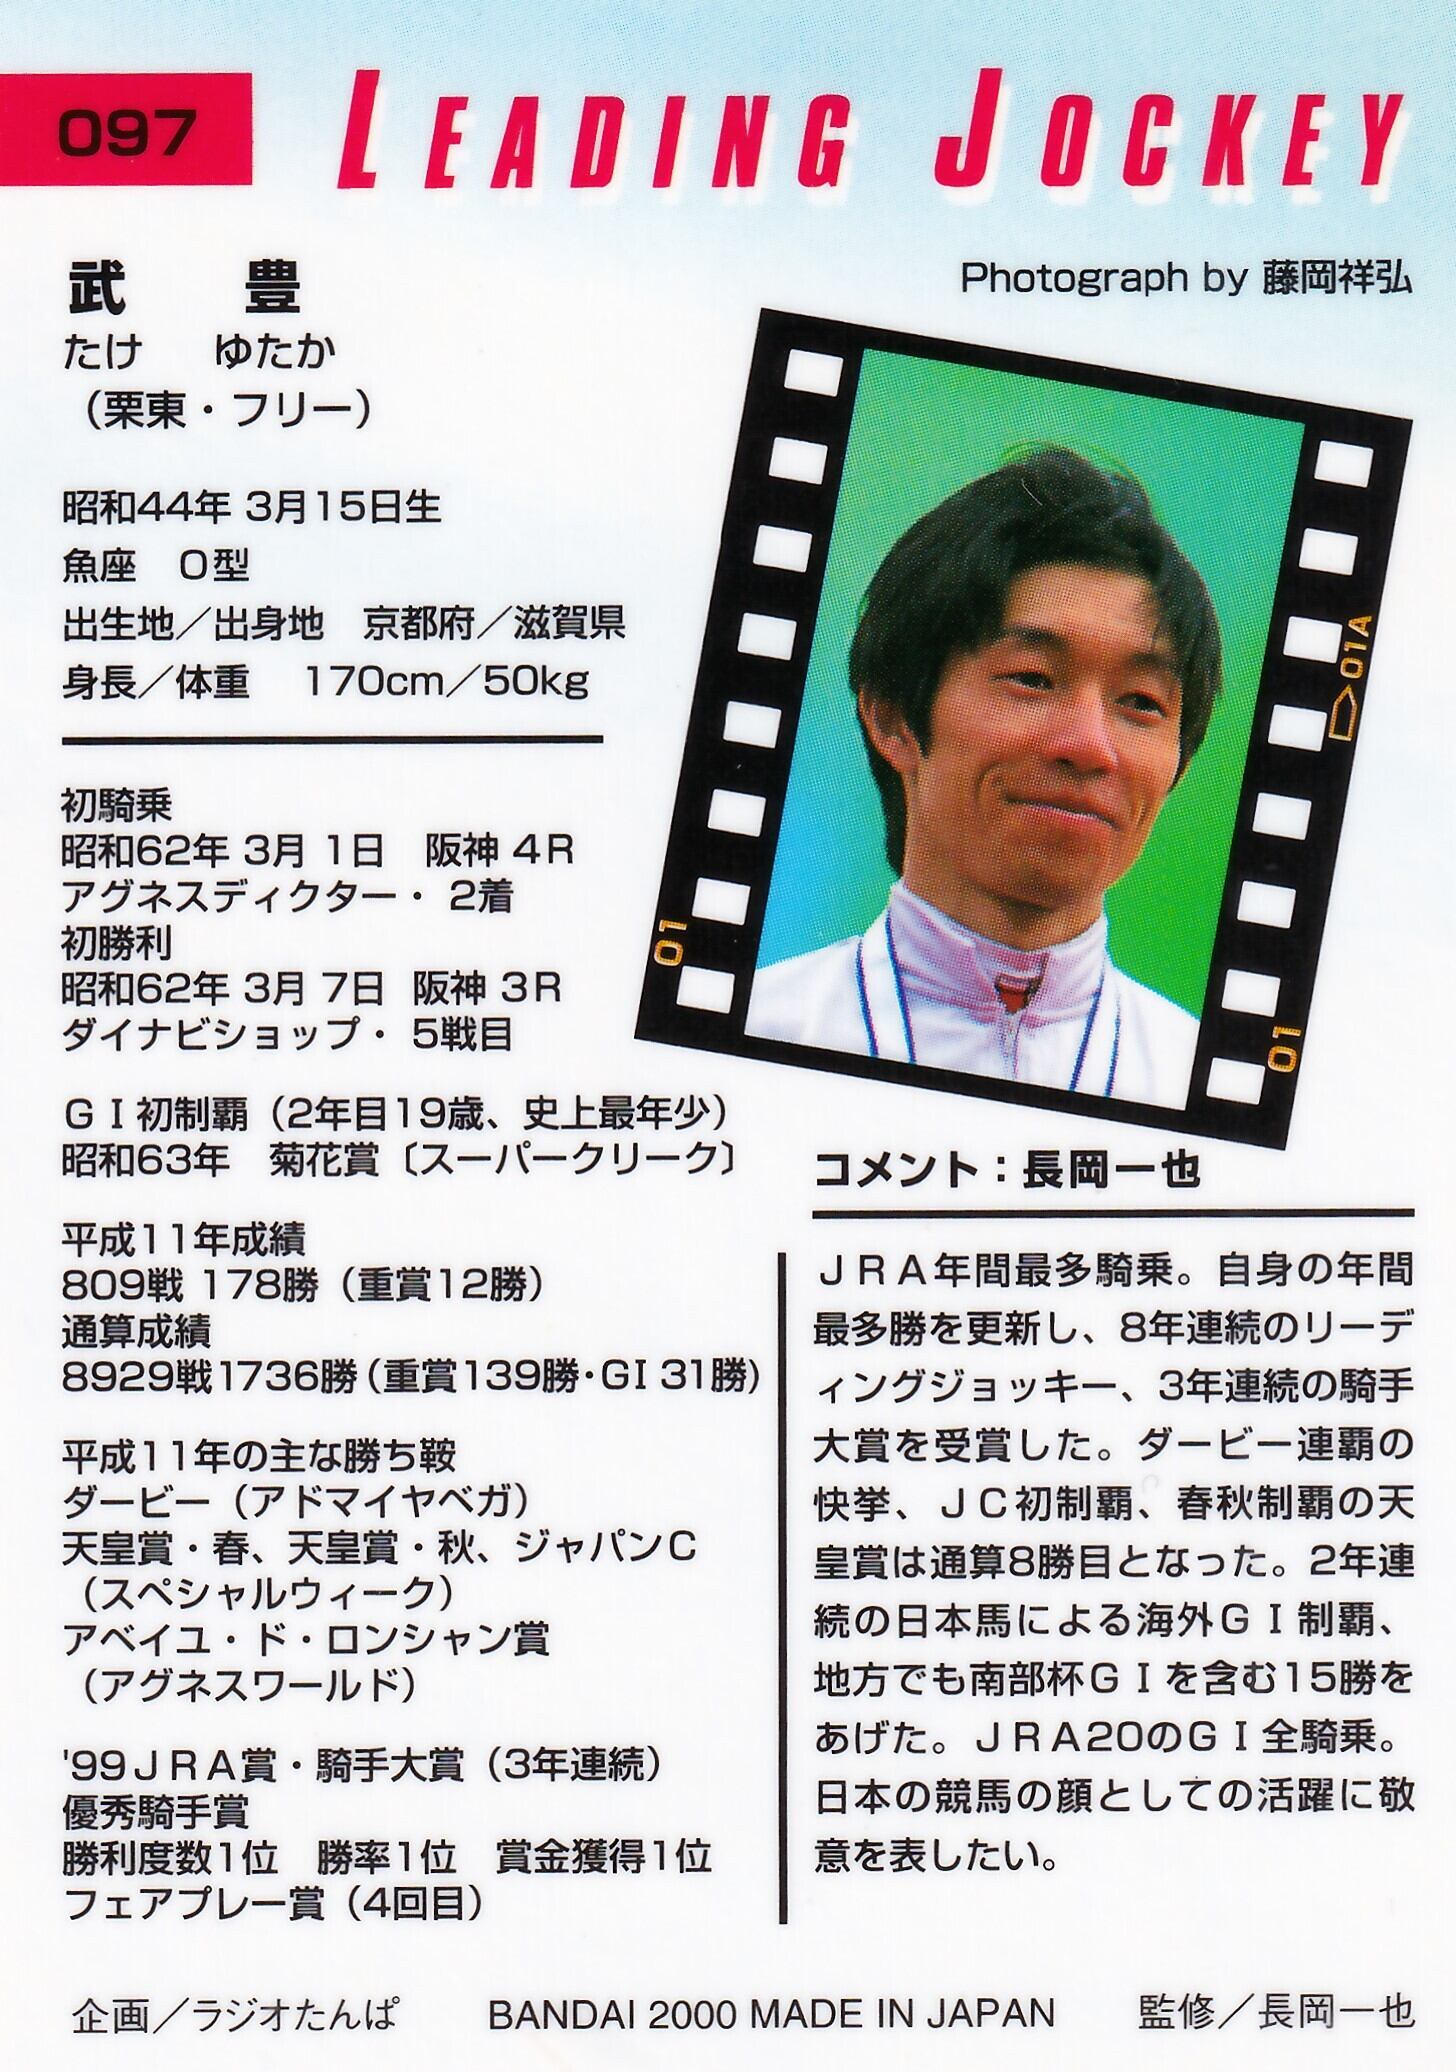 097
LEADING JOCKEY
Photograph by 藤岡祥弘
武 豊
たけ ゆたか
（栗東・フリー）
昭和44年 3月15日生
魚座 O型
出生地／出身地 京都府／滋賀県
身長／体重 170cm／50kg
初騎乗
昭和62年 3月 1日 阪神 4R
アグネスディクター・ 2着
初勝利
昭和62年 3月 7日 阪神 3R
ダイナビショップ・ 5戦目
GⅠ初制覇（2年目19歳、史上最年少）
昭和63年 菊花賞〔スーパークリーク〕
平成11年成績
809戦 178勝（重賞12勝）
通算成績
8929戦1736勝（重賞139勝・GⅠ31勝）
平成11年の主な勝ち鞍
ダービー（アドマイヤベガ）
天皇賞・春、天皇賞・秋、ジャパンC
（スペシャルウィーク）
アベイユ・ド・ロンシャン賞
（アグネスワールド）
'99JRA賞・騎手大賞（3年連続）
優秀騎手賞
勝利度数1位 勝率1位 賞金獲得1位
フェアプレー賞（4回目）
01A
01
01
コメント：長岡一也
JRA年間最多騎乗。自身の年間
最多勝を更新し、8年連続のリーデ
ィングジョッキー、3年連続の騎手
大賞を受賞した。ダービー連覇の
快挙、JC初制覇、春秋制覇の天
皇賞は通算8勝目となった。2年連
続の日本馬による海外GⅠ制覇、
地方でも南部杯GⅠを含む15勝を
あげた。JRA20のGⅠ全騎乗。
日本の競馬の顔としての活躍に敬
意を表したい。
企画／ラジオたんぱ BANDAI 2000 MADE IN JAPAN 監修／長岡一也